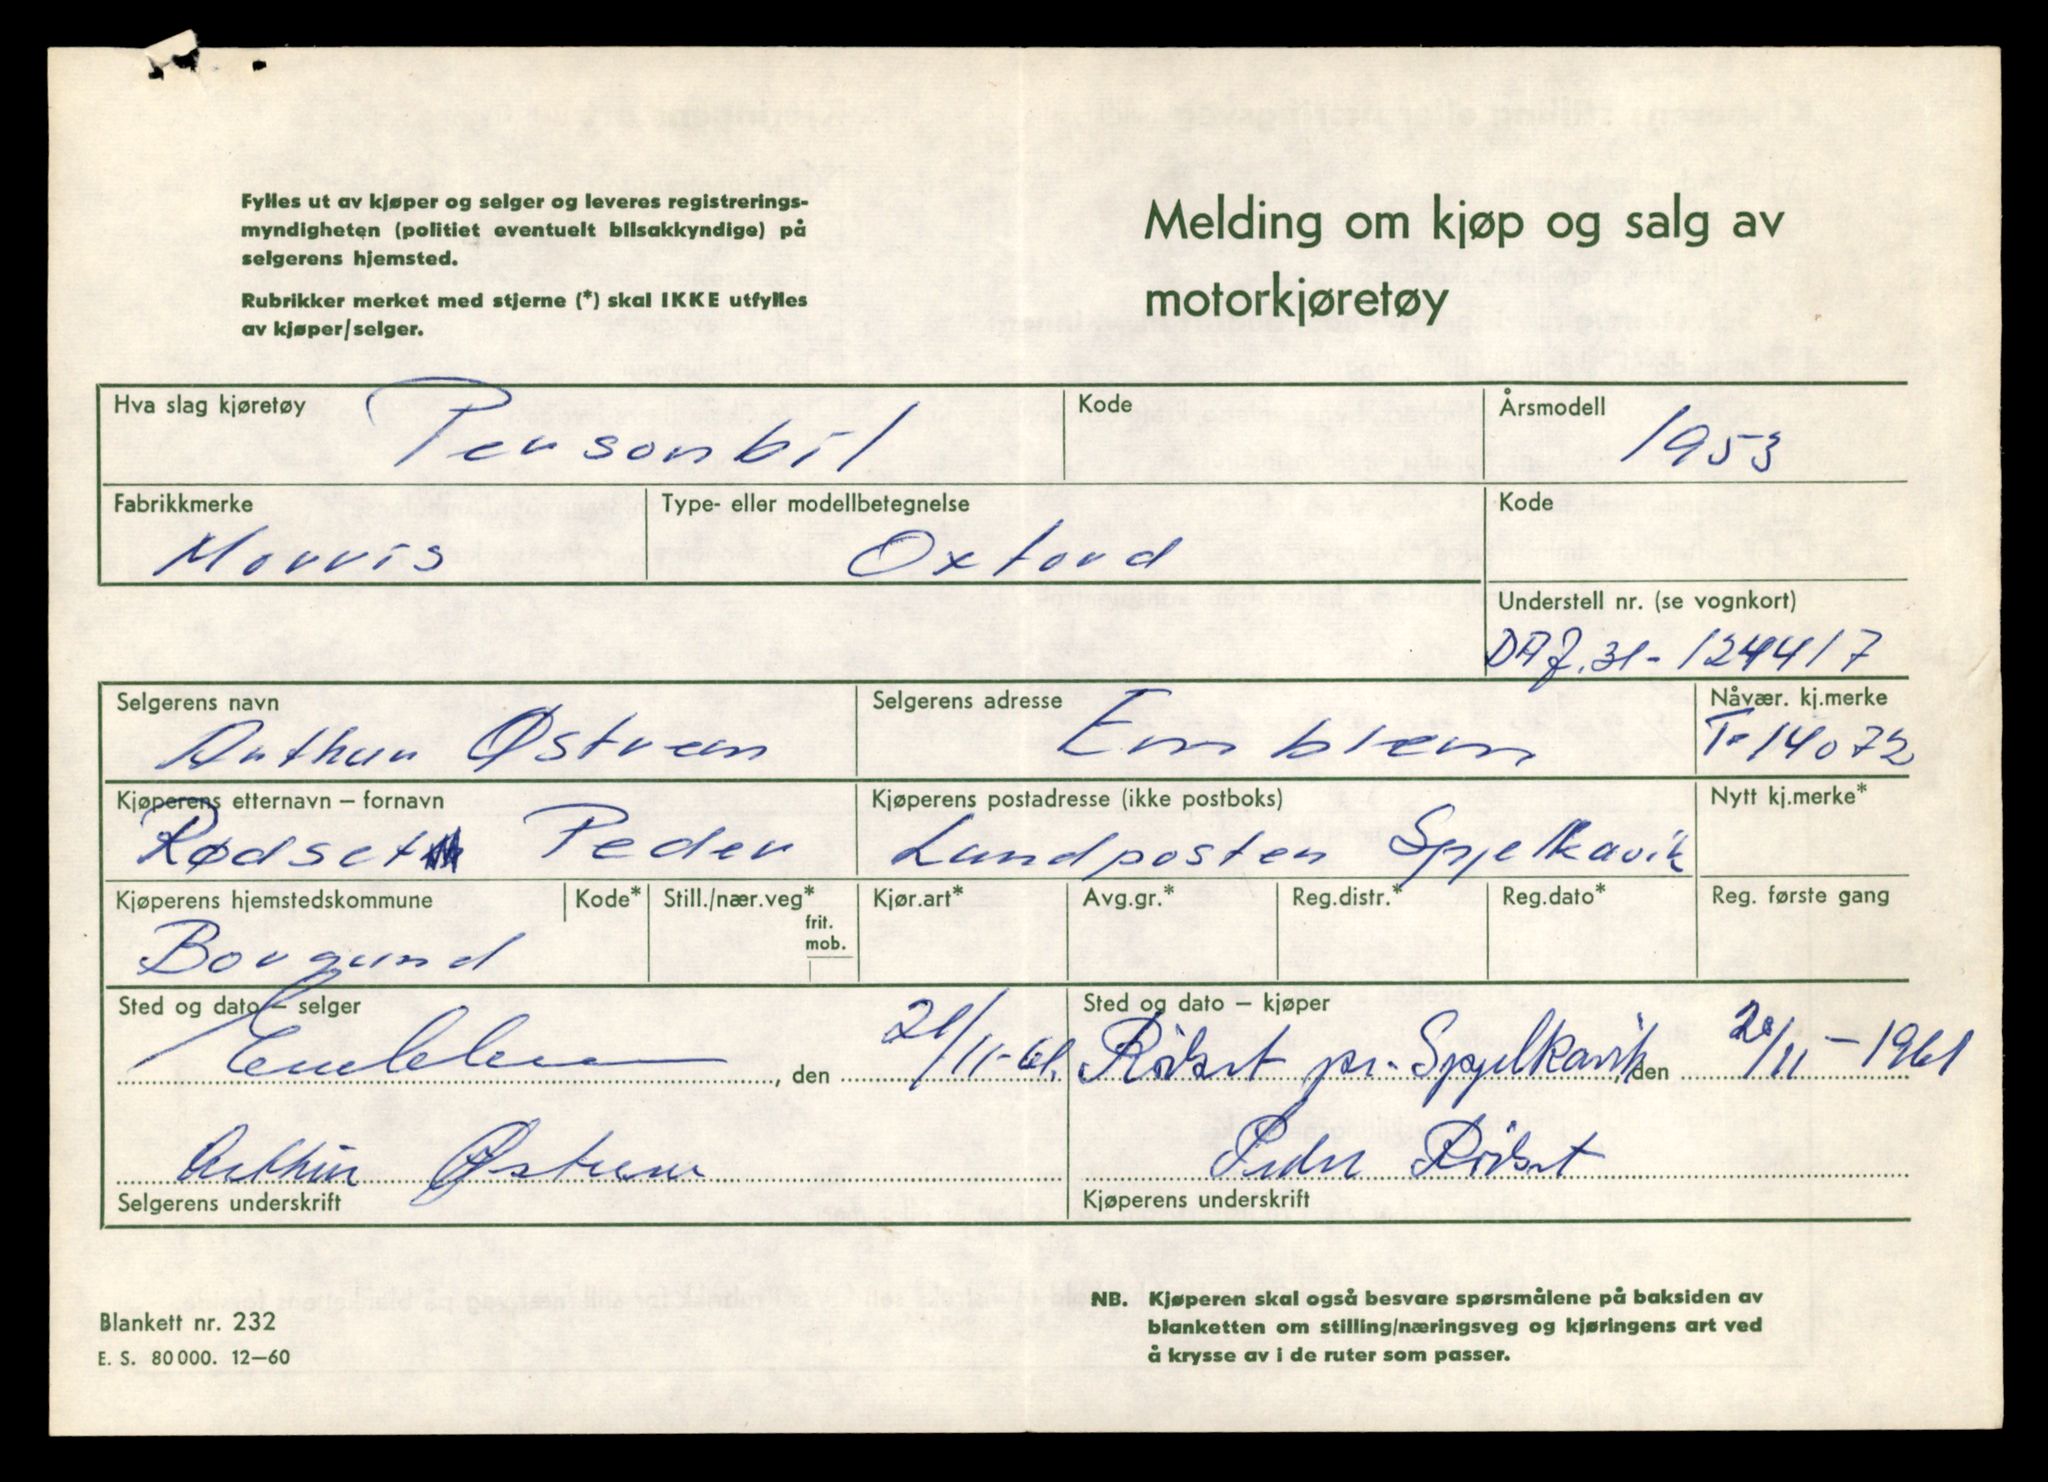 Fylles ut av kjøper og selger og leveres registrerings-
myndigheten (politiet eventuelt bilsakkyndige) på
selgerens hjemsted.
Rubrikker merket med stjerne (*) skal IKKE utfylles
av kjøper/selger.
Melding om kjøp og salg av
motorkjøretøy
Hva slag kjøretøy Personbil Kode Årsmodell 1953
Fabrikkmerke Morris Type- eller modellbetegnelse Oxford Kode
Understell nr. (se vognkort)
DAJ.31-124417
Selgerens navn Arthur Østrem Selgerens adresse Emblem Nåvær. kj.merke T-14072
Kjøperens etternavn – fornavn Rødset Peder Kjøperens postadresse (ikke postboks) Landposten Spjelkavik Nytt kj.merke*
Kjøperens hjemstedskommune Borgund Kode* Still./nær.veg* frit. mob. Kjør.art* Avg.gr.* Reg.distr.* Reg.dato* Reg. første gang
Sted og dato – selger Sted og dato – kjøper
Emblem, den /11-61. Rødset pr. Spjelkavik, den 20/11-1961
Arthur Østrem Peder Rødset
Selgerens underskrift Kjøperens underskrift
Blankett nr. 232
E. S. 80 000. 12–60
NB. Kjøperen skal også besvare spørsmålene på baksiden av
blanketten om stilling/næringsveg og kjøringens art ved
å krysse av i de ruter som passer.